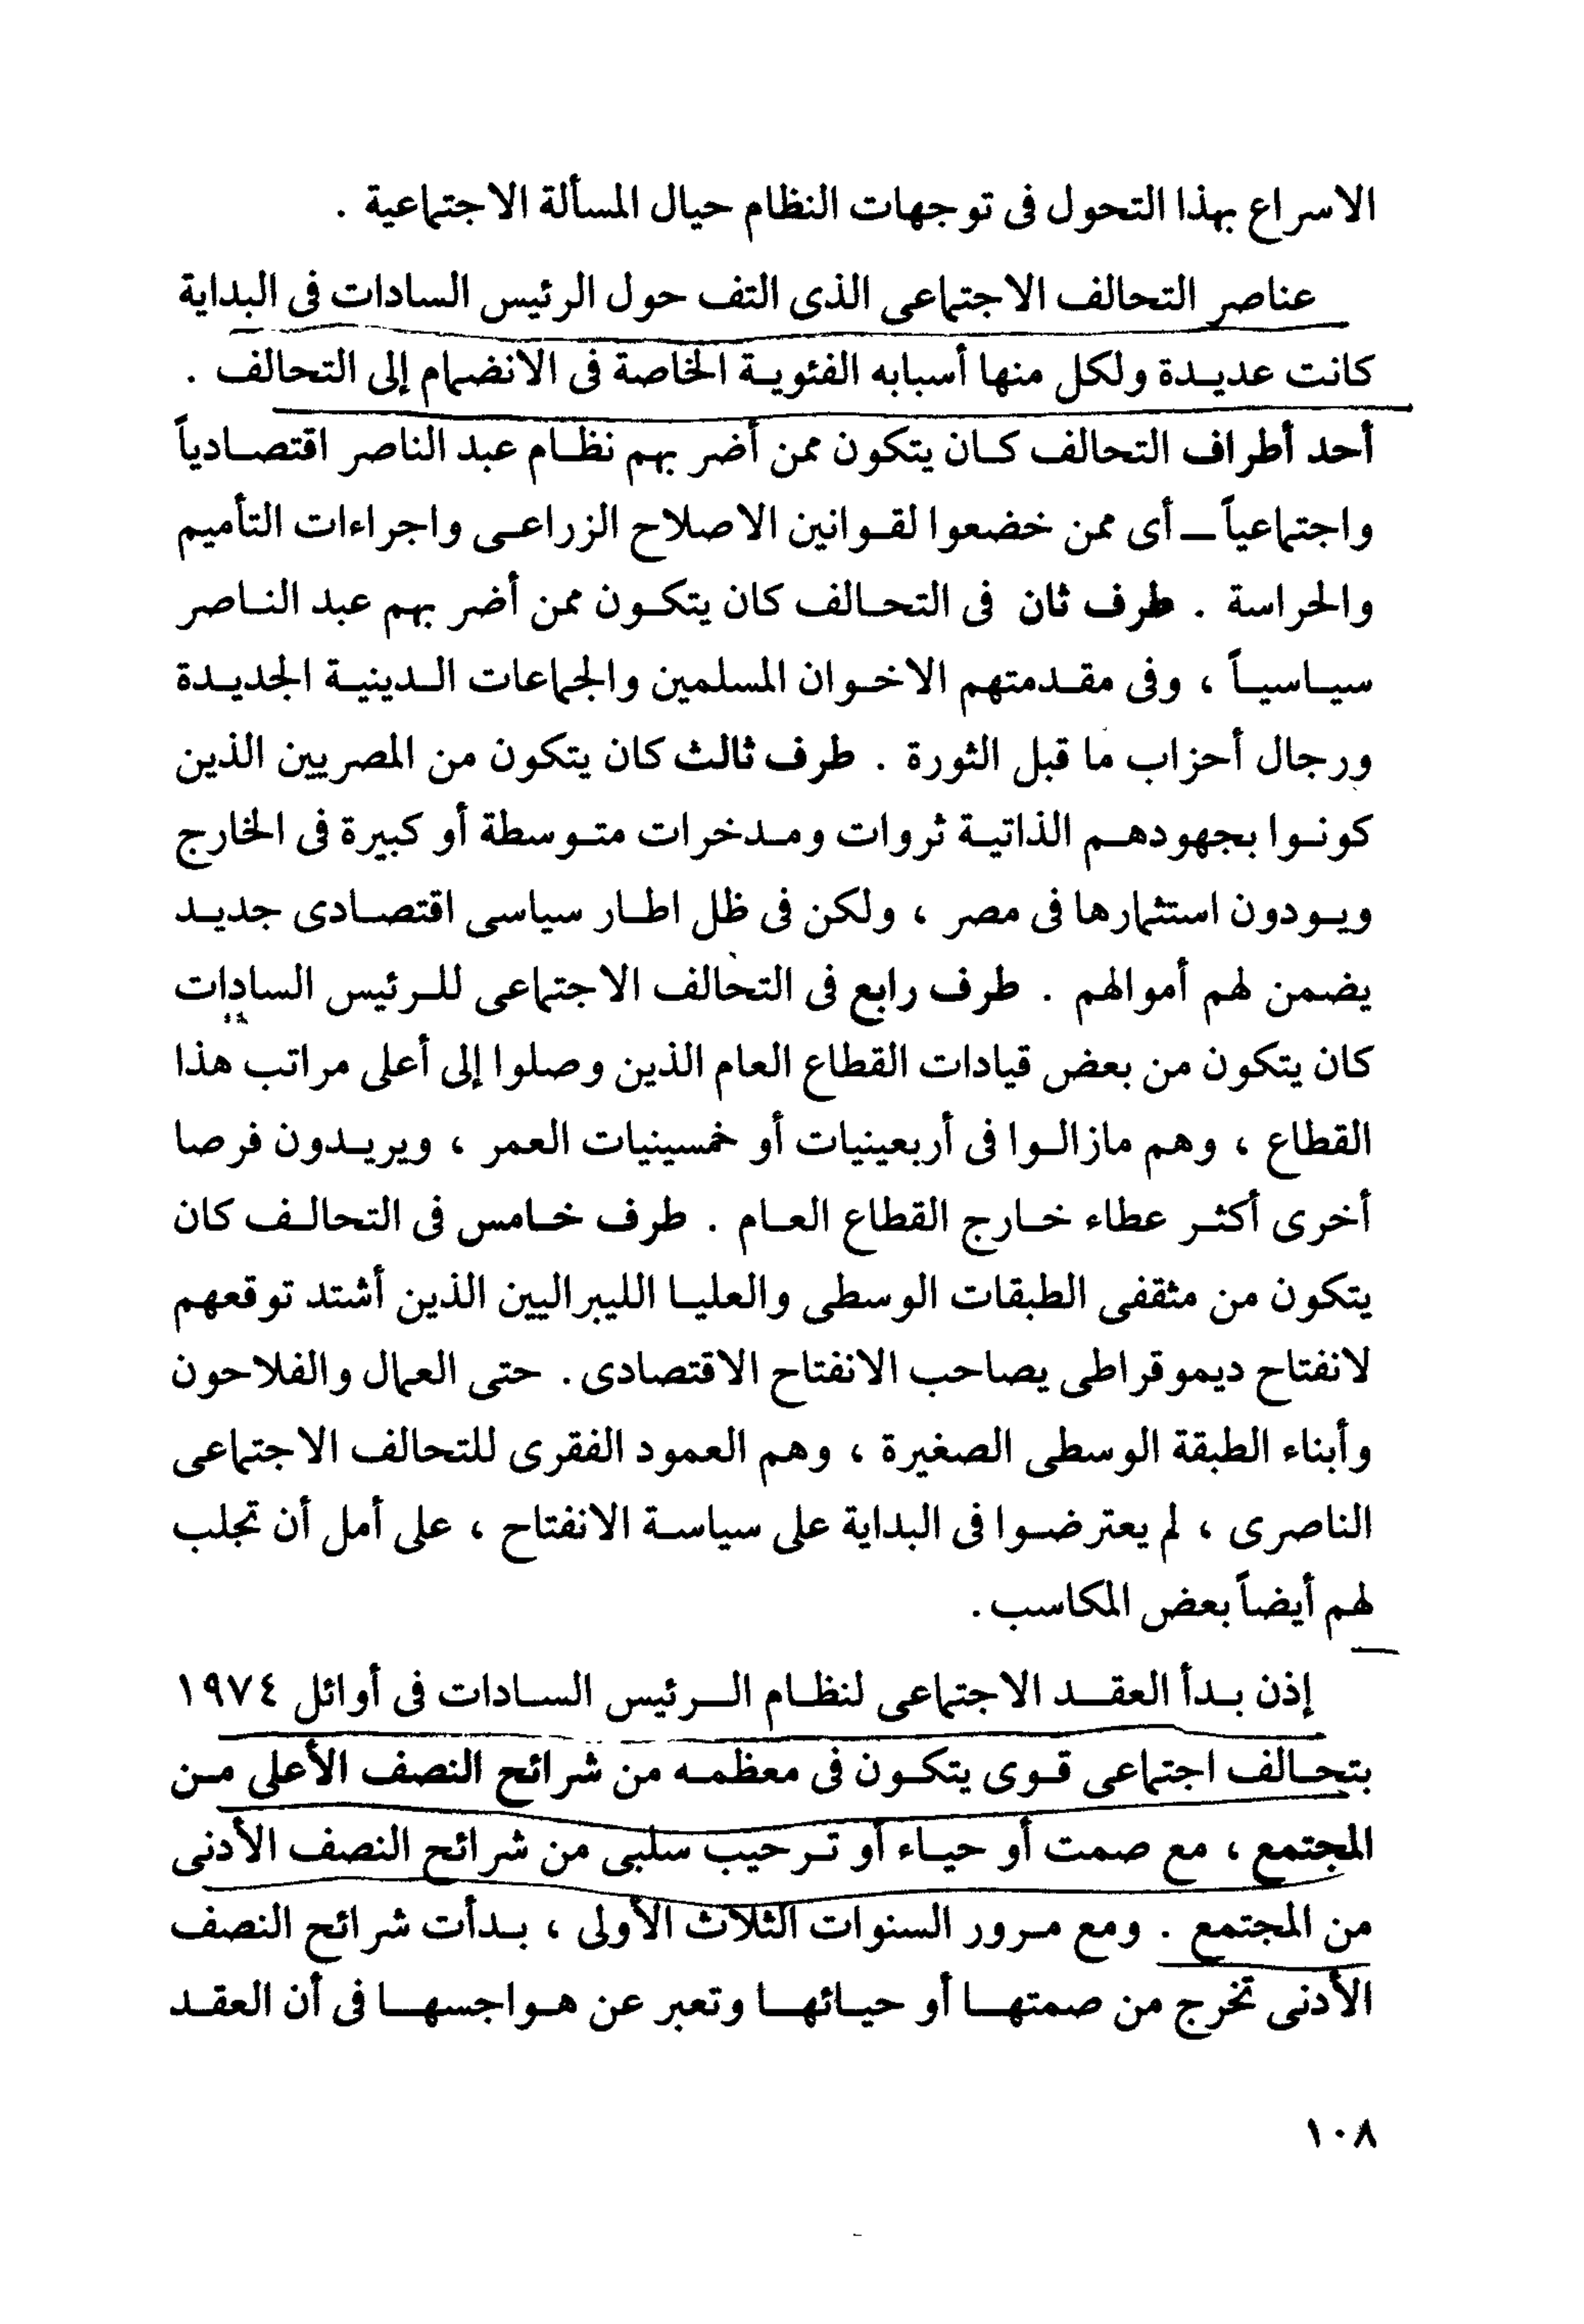 الاسراع بهذا التحول فى توجهات النظام حيال المسألة الاجتماعية .
عناصر التحالف الاجتماعى الذى التف حول الرئيس السادات فى البداية
كانت عديدة ولكل منها أسبابه الفئوية الخاصة فى الانضمام إلى التحالف .
أحد أطراف التحالف كان يتكون ممن أضر بهم نظام عبد الناصر اقتصادياً
واجتماعياً ــ أى ممن خضعوا لقوانين الاصلاح الزراعى واجراءات التأميم
والحراسة . طرف ثان فى التحالف كان يتكون ممن أضر بهم عبد الناصر
سياسياً ، وفى مقدمتهم الاخوان المسلمين والجماعات الدينية الجديدة
ورجال أحزاب ما قبل الثورة . طرف ثالث كان يتكون من المصريين الذين
كونوا بجهودهم الذاتية ثروات ومدخرات متوسطة أو كبيرة فى الخارج
ويودون استثمارها فى مصر ، ولكن فى ظل اطار سياسى اقتصادى جديد
يضمن لهم أموالهم . طرف رابع فى التحالف الاجتماعى للرئيس السادات
كان يتكون من بعض قيادات القطاع العام الذين وصلوا إلى أعلى مراتب هذا
القطاع ، وهم مازالوا فى أربعينيات أو خمسينيات العمر ، ويريدون فرصا
أخرى أكثر عطاء خارج القطاع العام . طرف خامس فى التحالف كان
يتكون من مثقفى الطبقات الوسطى والعليا الليبراليين الذين أشتد توقعهم
لانفتاح ديموقراطى يصاحب الانفتاح الاقتصادى . حتى العمال والفلاحون
وأبناء الطبقة الوسطى الصغيرة ، وهم العمود الفقرى للتحالف الاجتماعى
الناصرى ، لم يعترضوا فى البداية على سياسة الانفتاح ، على أمل أن تجلب
لهم أيضاً بعض المكاسب .
إذن بدأ العقد الاجتماعى لنظام الرئيس السادات فى أوائل ١٩٧٤
بتحالف اجتماعى قوى يتكون فى معظمه من شرائح النصف الأعلى من
المجتمع ، مع صمت أو حياء أو ترحيب سلبى من شرائح النصف الأدنى
من المجتمع . ومع مرور السنوات الثلاث الأولى ، بدأت شرائح النصف
الأدنى تخرج من صمتها أو حيائها وتعبر عن هواجسها فى أن العقد
١٠٨